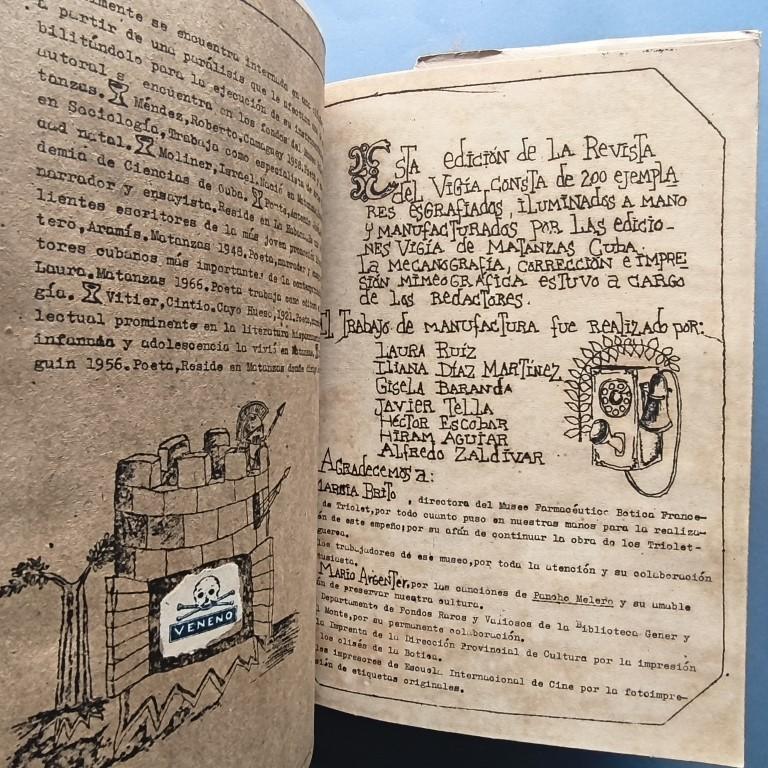 lmente se encuentra internado en una
A partir de una parálisis que le afectó
bilitándolo para la ejecución de su inst
autoral s encuentra en los fondos del
tanzas. Méndez,Roberto,Camaguey 1958.Poeta,
en Sociología,Trabaja como especialista de
dad natal. Moliner,Israel.Nació en Matanzas
demia de Ciencias de Cuba. Ponte,Antonio
narrador y ensayista.Reside en La Habana.
lientes escritores de la más joven promoción
tero,Aramís.Matanzas 1948.Poeta,narrador
tores cubanos más importantes de la contempo
Laura.Matanzas 1966.Poeta trabaja como editora
gía. Vitier,Cintio.Cayo Hueso,1921.Poeta,
lectual prominente en la literatura hispanoam
infancia y adolescencia la vivió en Matanzas.
guín 1956.Poeta,Reside en Matanzas desde
VENENO
Esta edición de la Revista
del Vigía consta de 200 ejempla
res esgrafiados, iluminados a mano
y manufacturados por las edicio-
nes Vigía de Matanzas Cuba.
La mecanografía, corrección e impre
sión mimeográfica estuvo a cargo
de los redactores.
El Trabajo de manufactura fue realizado por:
Laura Ruíz
Iliana Díaz Martínez
Gisela Baranda
Javier Tella
Héctor Escobar
Hiram Aguiar
Alfredo Zaldívar
Agradecemos a:
Marcia Brito, directora del Museo Farmacéutico Botica France-
de Triolet,por todo cuanto puso en nuestras manos para la realiza-
ón de este empeño,por su afán de continuar la obra de los Triolet-
gueroa.
los trabajadores de ese museo,por toda la atención y su colaboración
usiasta.
Mario Argenter,por las canciones de Pancho Melero y su amable
n de preservar nuestra cultura.
Departamento de Fondos Raros y Valiosos de la Biblioteca Gener y
l Monte,por su permanente colaboración.
la Imprenta de la Dirección Provincial de Cultura por la impresión
los clisés de la Botica.
les impresores de Escuela Internacional de Cine por la fotoimpre-
sión de etiquetas originales.